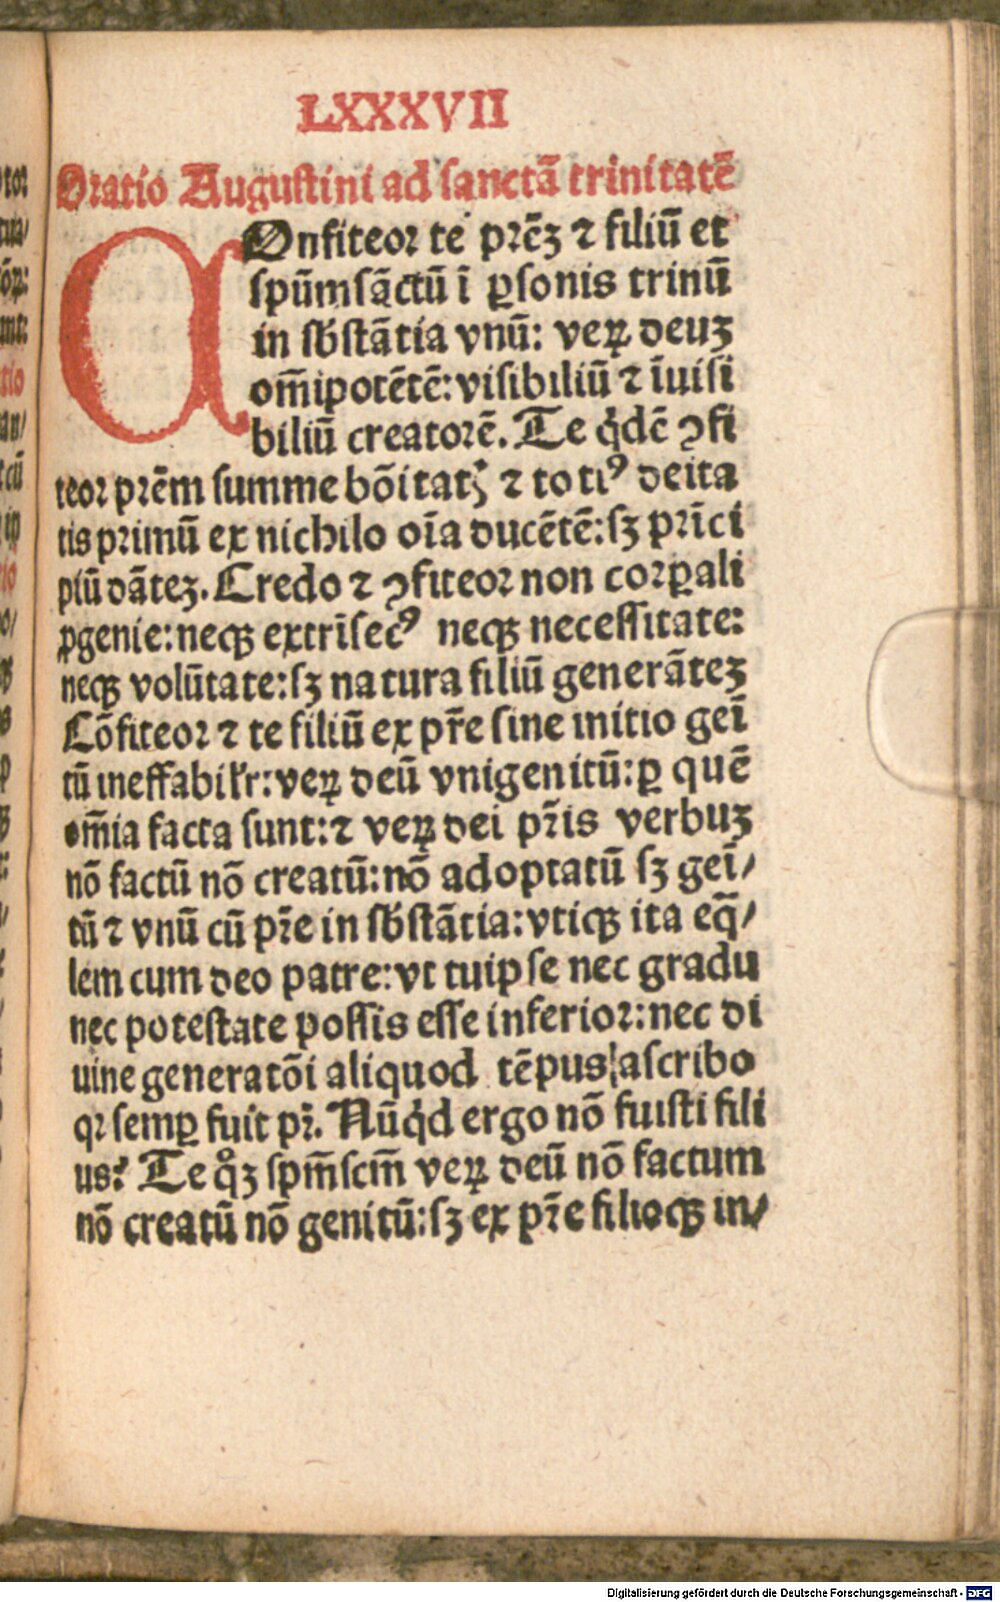 LXXXVII
Oratio Augustini ad sanctã trinitatẽ
COnfiteor te prẽz ⁊ filiũ et
spũmsãctũ ĩ ꝑsonis trinũ
in sb̃stãtia vnũ: veꝝ deuz
om̃ipotẽtẽ: visibiliũ ⁊ ĩuisi
biliũ creatorẽ. Te q̇dẽ ꝯfi
teor prẽm summe bõitatꝭ ⁊ totiꝰ deita
tis primũ ex nichilo oĩa ducẽtẽ: sꝫ prĩci
piũ dãtez. Credo ⁊ ꝯfiteor non corꝑali
ꝓgenie: neqꝫ extrĩsecꝰ neqꝫ necessitate:
neqꝫ volũtate: sꝫ natura filiũ generãtez
Cõfiteor ⁊ te filiũ ex pr̃e sine initio geĩ
tũ ineffabilr̃: veꝝ deũ vnigenitũ: ꝑ quẽ
om̃ia facta sunt: ⁊ veꝝ dei pr̃is verbuz
nõ factũ nõ creatũ: nõ adoptatũ sꝫ geĩ/
tũ ⁊ vnũ cũ pr̃e in sb̃stãtia: vtiqꝫ ita eq̃/
lem cum deo patre: vt tuipse nec gradu
nec potestate possis esse inferior: nec di
uine generatõi aliquod tẽpus ascribo
qꝛ semꝑ fuit pr̃. Nũq̇d ergo nõ fuisti fili
us? Te qͦꝫ spm̃scm̃ veꝝ deũ nõ factum
nõ creatũ nõ genitũ: sꝫ ex pr̃e filioqꝫ in/
Digitalisierung gefördert durch die Deutsche Forschungsgemeinschaft - DFG